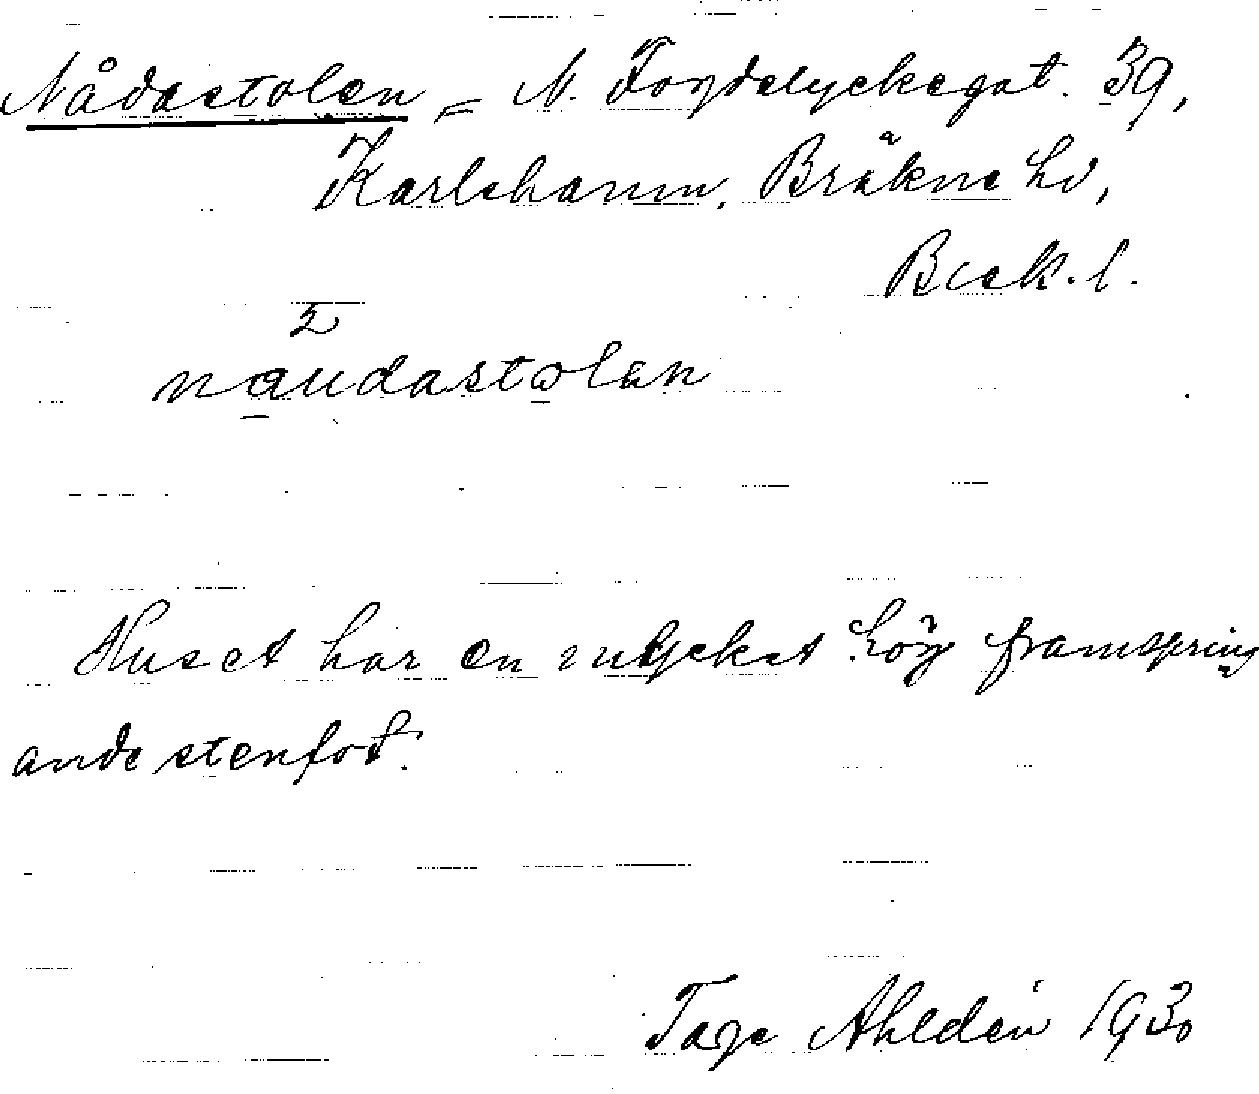 Nådastolen = N. Fogdelyckegat. 39,
Karlshamn, Bräkne hd,
Blek. l.
naudastolen
Huset har en mycket hög framspring
ande stenfot.
Tage Ahldén 1930